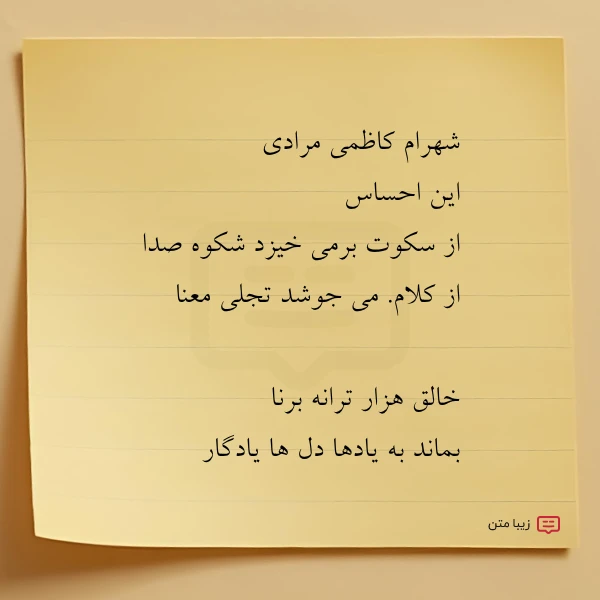 شهرام کاظمی مرادی
این احساس
از سکوت برمی خیزد شکوه صدا
از کلام. می جوشد تجلی معنا
خالق هزار ترانه برنا
بماند به یادها دل ها یادگار
زیبا متن